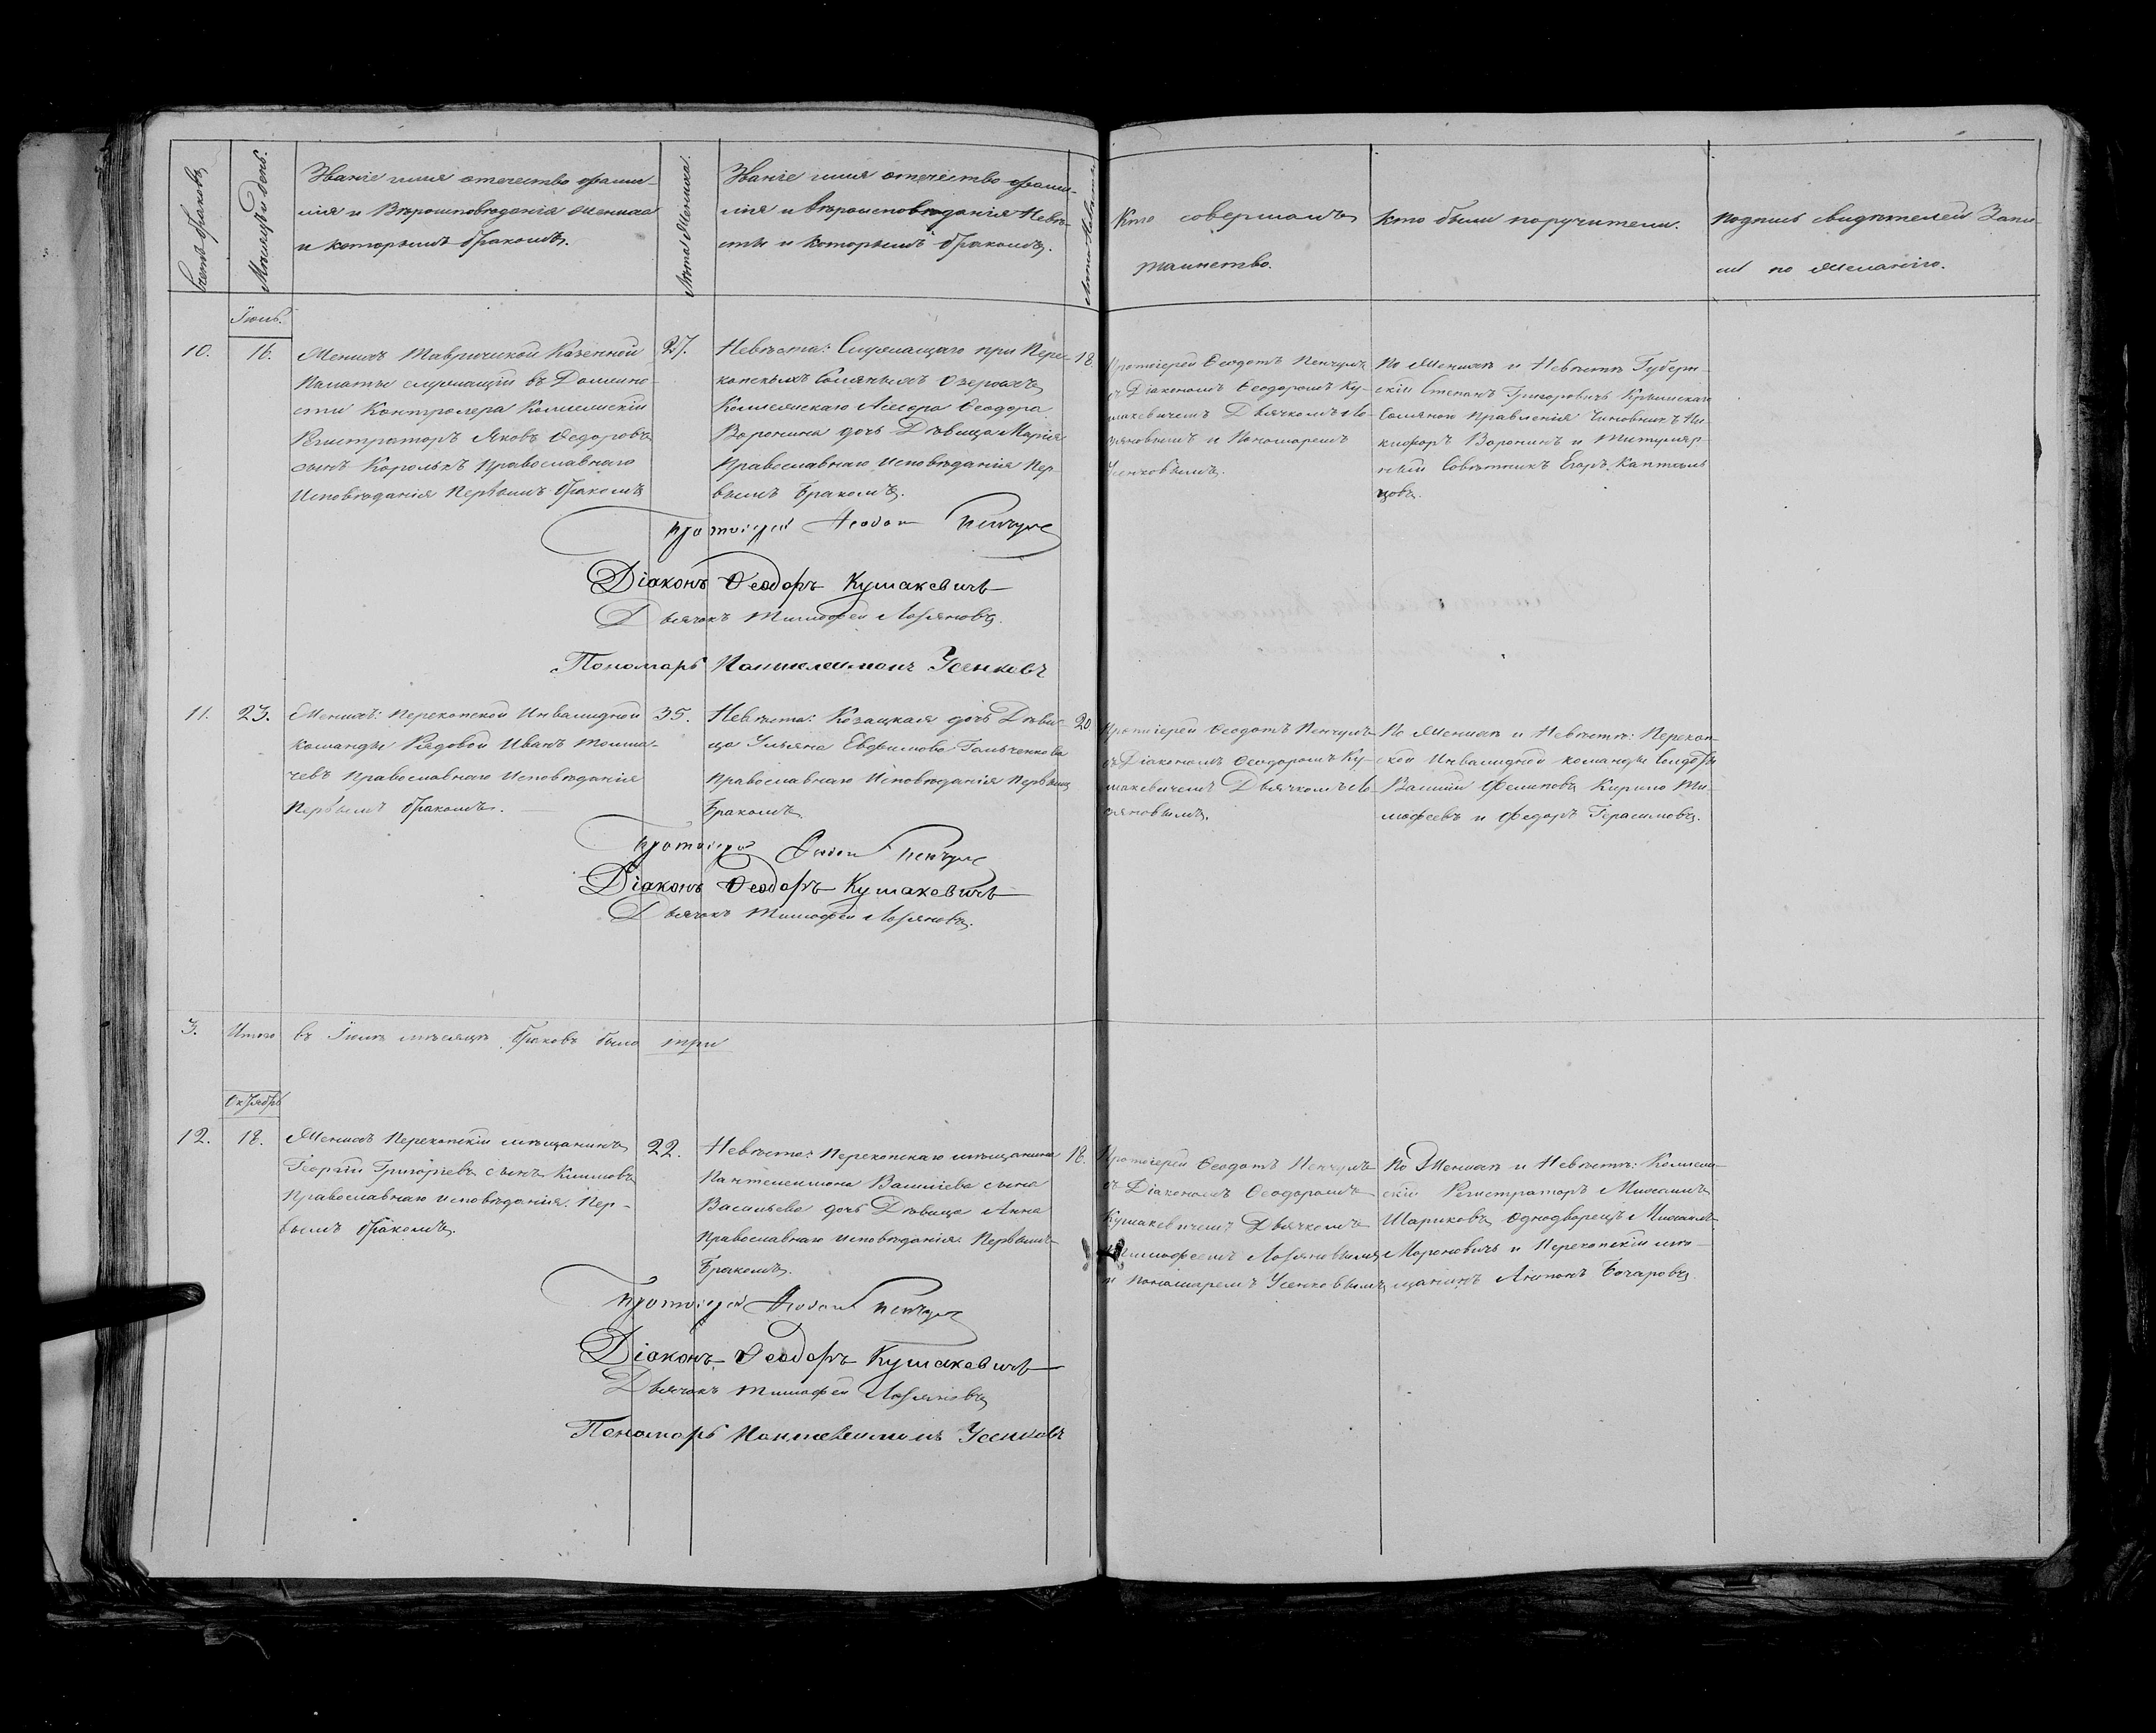 Счетъ браковъ
Мѣсяцъ и день.
Званіе имя отечество фами-
лія и Вѣроисповѣданія жениха
и которымъ бракомъ.
Лѣта Жениха.
Званіе имя отечество фами-
лія и вѣроисповѣданія Невѣ-
сты и которымъ бракомъ.
Лѣта Невѣсты
Кто совершалъ
таинство.
Кто были поручители.
Подпись свидѣтелей Запи-
си по желанію.
Іюль.
10.
16.
Женихъ Таврической Казенной
Палаты служащій въ Должно-
сти Контролера Коллежскій
Регистраторъ Яковъ Федоровъ
сынъ Корольковъ Православнаго
Исповѣданія Первымъ бракомъ
27.
Невѣста: Служащаго при Пере-
копскихъ Соляныхъ Озерахъ
Коллежскаго Асесора Феодора
Воронина дочь Дѣвица Марія
Православнаго Исповѣданія Пер-
вымъ Бракомъ.
18
Протоіерей Феодотъ Пенчулъ
съ Діакономъ Феодоромъ Ку-
шакевичемъ Дьячкомъ Ло-
зяновымъ и Пономаремъ
Усенковымъ.
По Женихѣ и Невѣстѣ Губерн-
скій Степанъ Григоровичъ Крымскаго
Солянаго Правленія Чиновникъ Ни-
кифоръ Воронинъ и Титуляр-
ный Совѣтникъ Егоръ Каптель
цовъ.
Протоіерей Феодотъ Пенчулъ
Діаконъ Феодоръ Кушакевичъ
Дьячокъ Тимофей Лозяновъ.
Пономарь Пантелеимонъ Усенковъ
11.
23.
Женихъ: Перекопской Инвалидной
команды Рядовой Иванъ Толма-
чевъ Православнаго Исповѣданія
Первымъ бракомъ.
35.
Невѣста: Козацкая дочь Дѣви-
ца Ульяна Евфимова Гальченкова
Православнаго Исповѣданія Первымъ
Бракомъ.
20
Протоіерей Феодотъ Пенчулъ
съ Діакономъ Феодоромъ Ку-
шакевичемъ Дьячкомъ Ло-
зяновымъ.
По Женихѣ и Невѣстѣ: Перекоп-
ской Инвалидной команды
Василій Филиповъ Кирило Ти-
мофеевъ и Федоръ Герасимовъ.
Протоіерей Феодотъ Пенчулъ
Діаконъ Феодоръ Кушакевичъ
Дьячокъ Тимофей Лозяновъ.
3.
Итого въ Іюлѣ мѣсяцѣ браковъ было три
Октябрь
12.
18.
Женихъ Перекопскій мѣщанинъ
Георгій Григорьевъ сынъ Климовъ
Православнаго исповѣданія. Пер-
вымъ бракомъ.
22.
Невѣста: Перекопскаго мѣщанина
Пантелеимона Василіева сына
Васильева дочь Дѣвица Анна
Православнаго исповѣданія. Первымъ
Бракомъ.
18.
Протоіерей Феодотъ Пенчулъ
съ Діакономъ Феодоромъ
Кушакевичемъ Дьячкомъ
Тимофеемъ Лозяновымъ
и Пономаремъ Усенковымъ
По Женихѣ и Невѣстѣ: Коллеж-
скій Регистраторъ Михаилъ
Шариковъ, Однодворецъ Михаилъ
Мороновичъ и Перекопскій мѣ-
щанинъ Антонъ Бочаровъ.
Протоіерей Феодотъ Пенчулъ
Діаконъ Феодоръ Кушакевичъ
Дьячокъ Тимофей Лозяновъ
Пономарь Пантелеимонъ Усенковъ